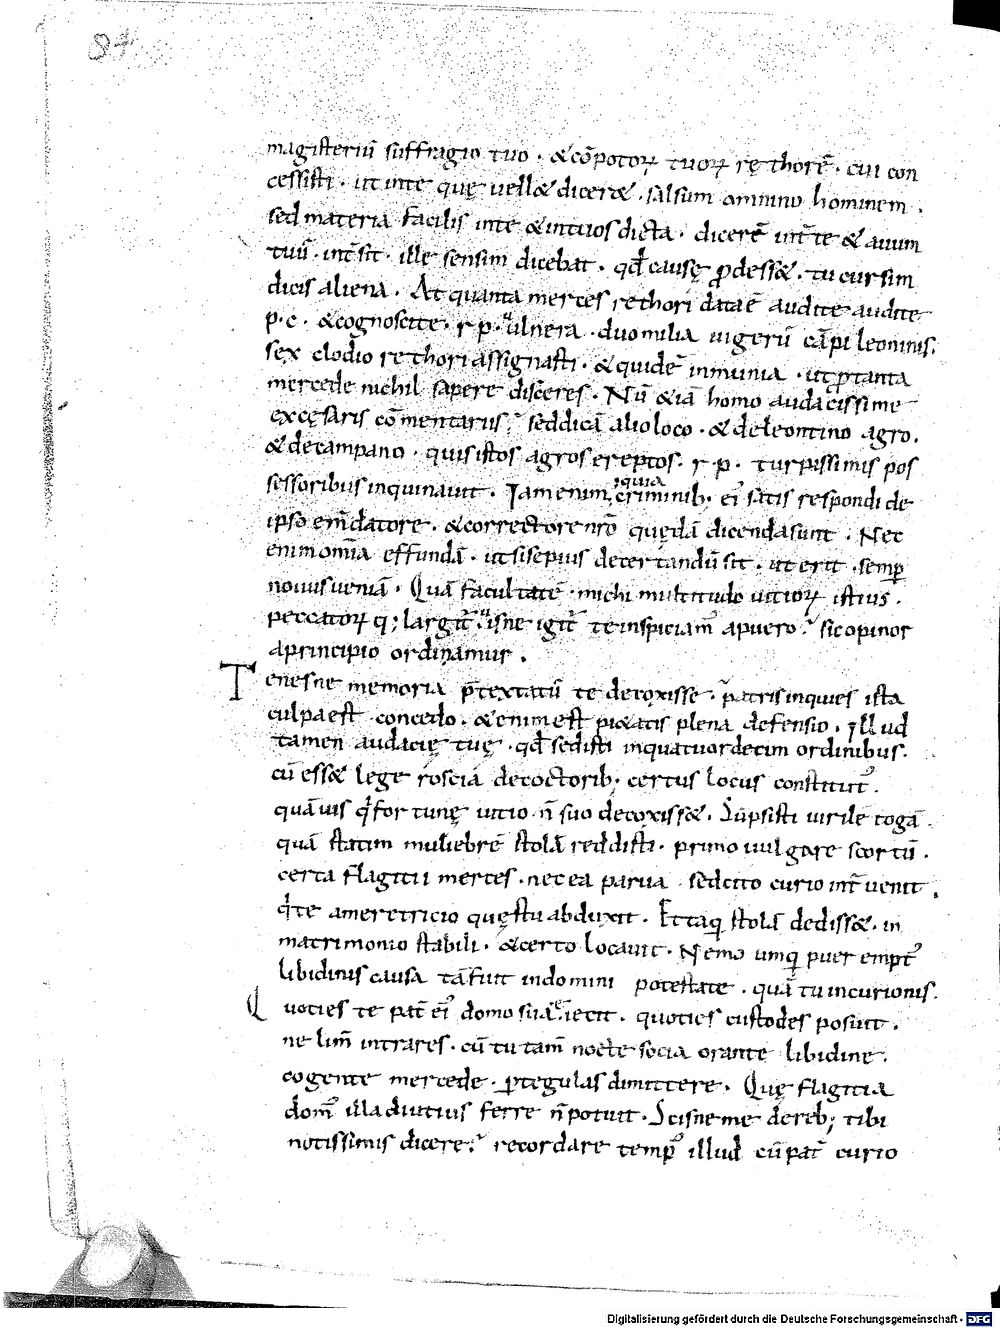 87
magisteriū suffragio tuo · &cōpotoꝝ tuoꝝ ręthorē · cui con
cessisti · ut inte quę uell& dicer& · salsum omnino hominem ·
sed materia facilis inte &intuos dicta · dicerē int̄ te & auum
tuū · int̄sit · ille sensim dicebat · qd̄ causę ꝓdess& · tu cursim
dicis aliena · At quanta merces rethori data ē audite audite
p · c · &cognoscite · r p · uulnera · duo milia iugerū cāpi leontinis ·
sex clodio rethori assignasti · & quidē inmunia · ut ꝓ tanta
mercede nichil sapere disceres · Nū &iā homo audacissime
excęsaris cōmentariis ? sed dicā alio loco · & deleontino agro ·
& decampano · quis istos agros ereptos · r · p · turpissimis pos
sessoribus inquinauit · Iam enim quia criminib; eiꝰ satis respondi de
ipso em̄datore · &correctore nr̄o quędā dicenda sunt · Nec
enim om̄ia effundā · ut si sepius decertandū sit · ut erit · semp̄
nouus ueniā · Quā facultatē michi multitudo uitioꝝ istius ·
peccatoꝝ q; largit̄ · uisne igit̄ te inspiciamꝰ apuero ? sic opinor
aprincipio ordinamur ·
Tenesne memoria p̄textatū te decoxisse · patris inquies ista
culpa est concedo · &enim est pi&atis plena defensio · Illud
tamen audacię tuę · qd̄ sedisti inquatuordecim ordinibus ·
cū ess& lege roscia decoctorib; certus locus constitutꝰ ·
quāuis q̇s fortunę uitio n̄ suo decoxiss& · Sūpsisti uirile togā ·
quā statim muliebrē stolā reddisti · primo uulgare scortū ·
certa flagitii merces · nec ea parua sed cito curio int̄uenit ·
q̇ te ameretricio quęstu abduxit · Et taq̄ stolā dediss& · in
matrimonio stabili · &certo locauit · Nemo umq̄ puer emptꝰ
libidinis causa tā fuit indomini potestate · quā tu incurionis ·
Quoties te pat̄ eiꝰ domo suā eiecit · quoties custodes posuit ·
ne lim̄ intrares · cū tu tam̄ nocte socia orante libidine ·
cogente mercede · ꝑtegulas dimittere · Quę flagitia
domꝰ illa diutius ferre n̄ potuit · Scisne me dereb; tibi
notissimis dicere ? recordare tempꝰ illud cū pat̄ curio
Digitalisierung gefördert durch die Deutsche Forschungsgemeinschaft - DFG